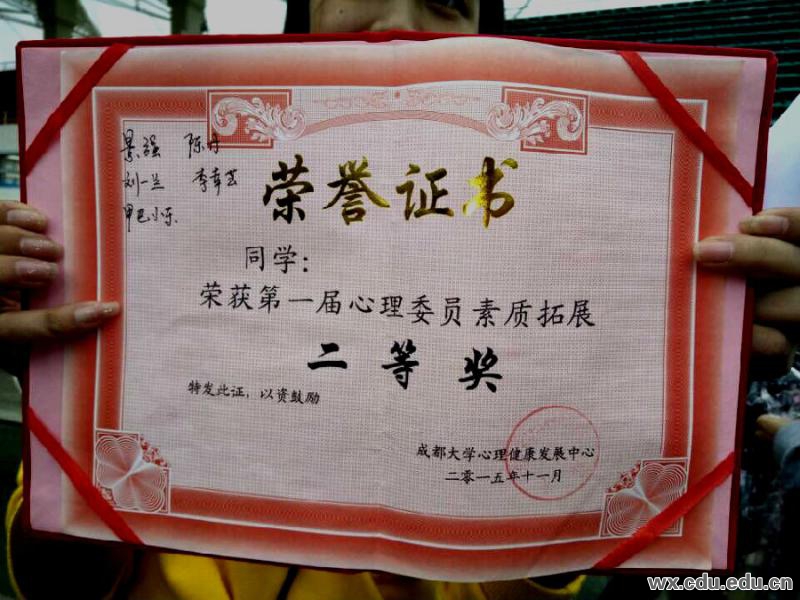 景强 陈丹
刘一兰 李幸芸
甲巴小乐
荣誉证书
同学：
荣获第一届心理委员素质拓展
二等奖
特发此证，以资鼓励
成都大学心理健康发展中心
二零一五年十一月
wx.cdu.edu.cn